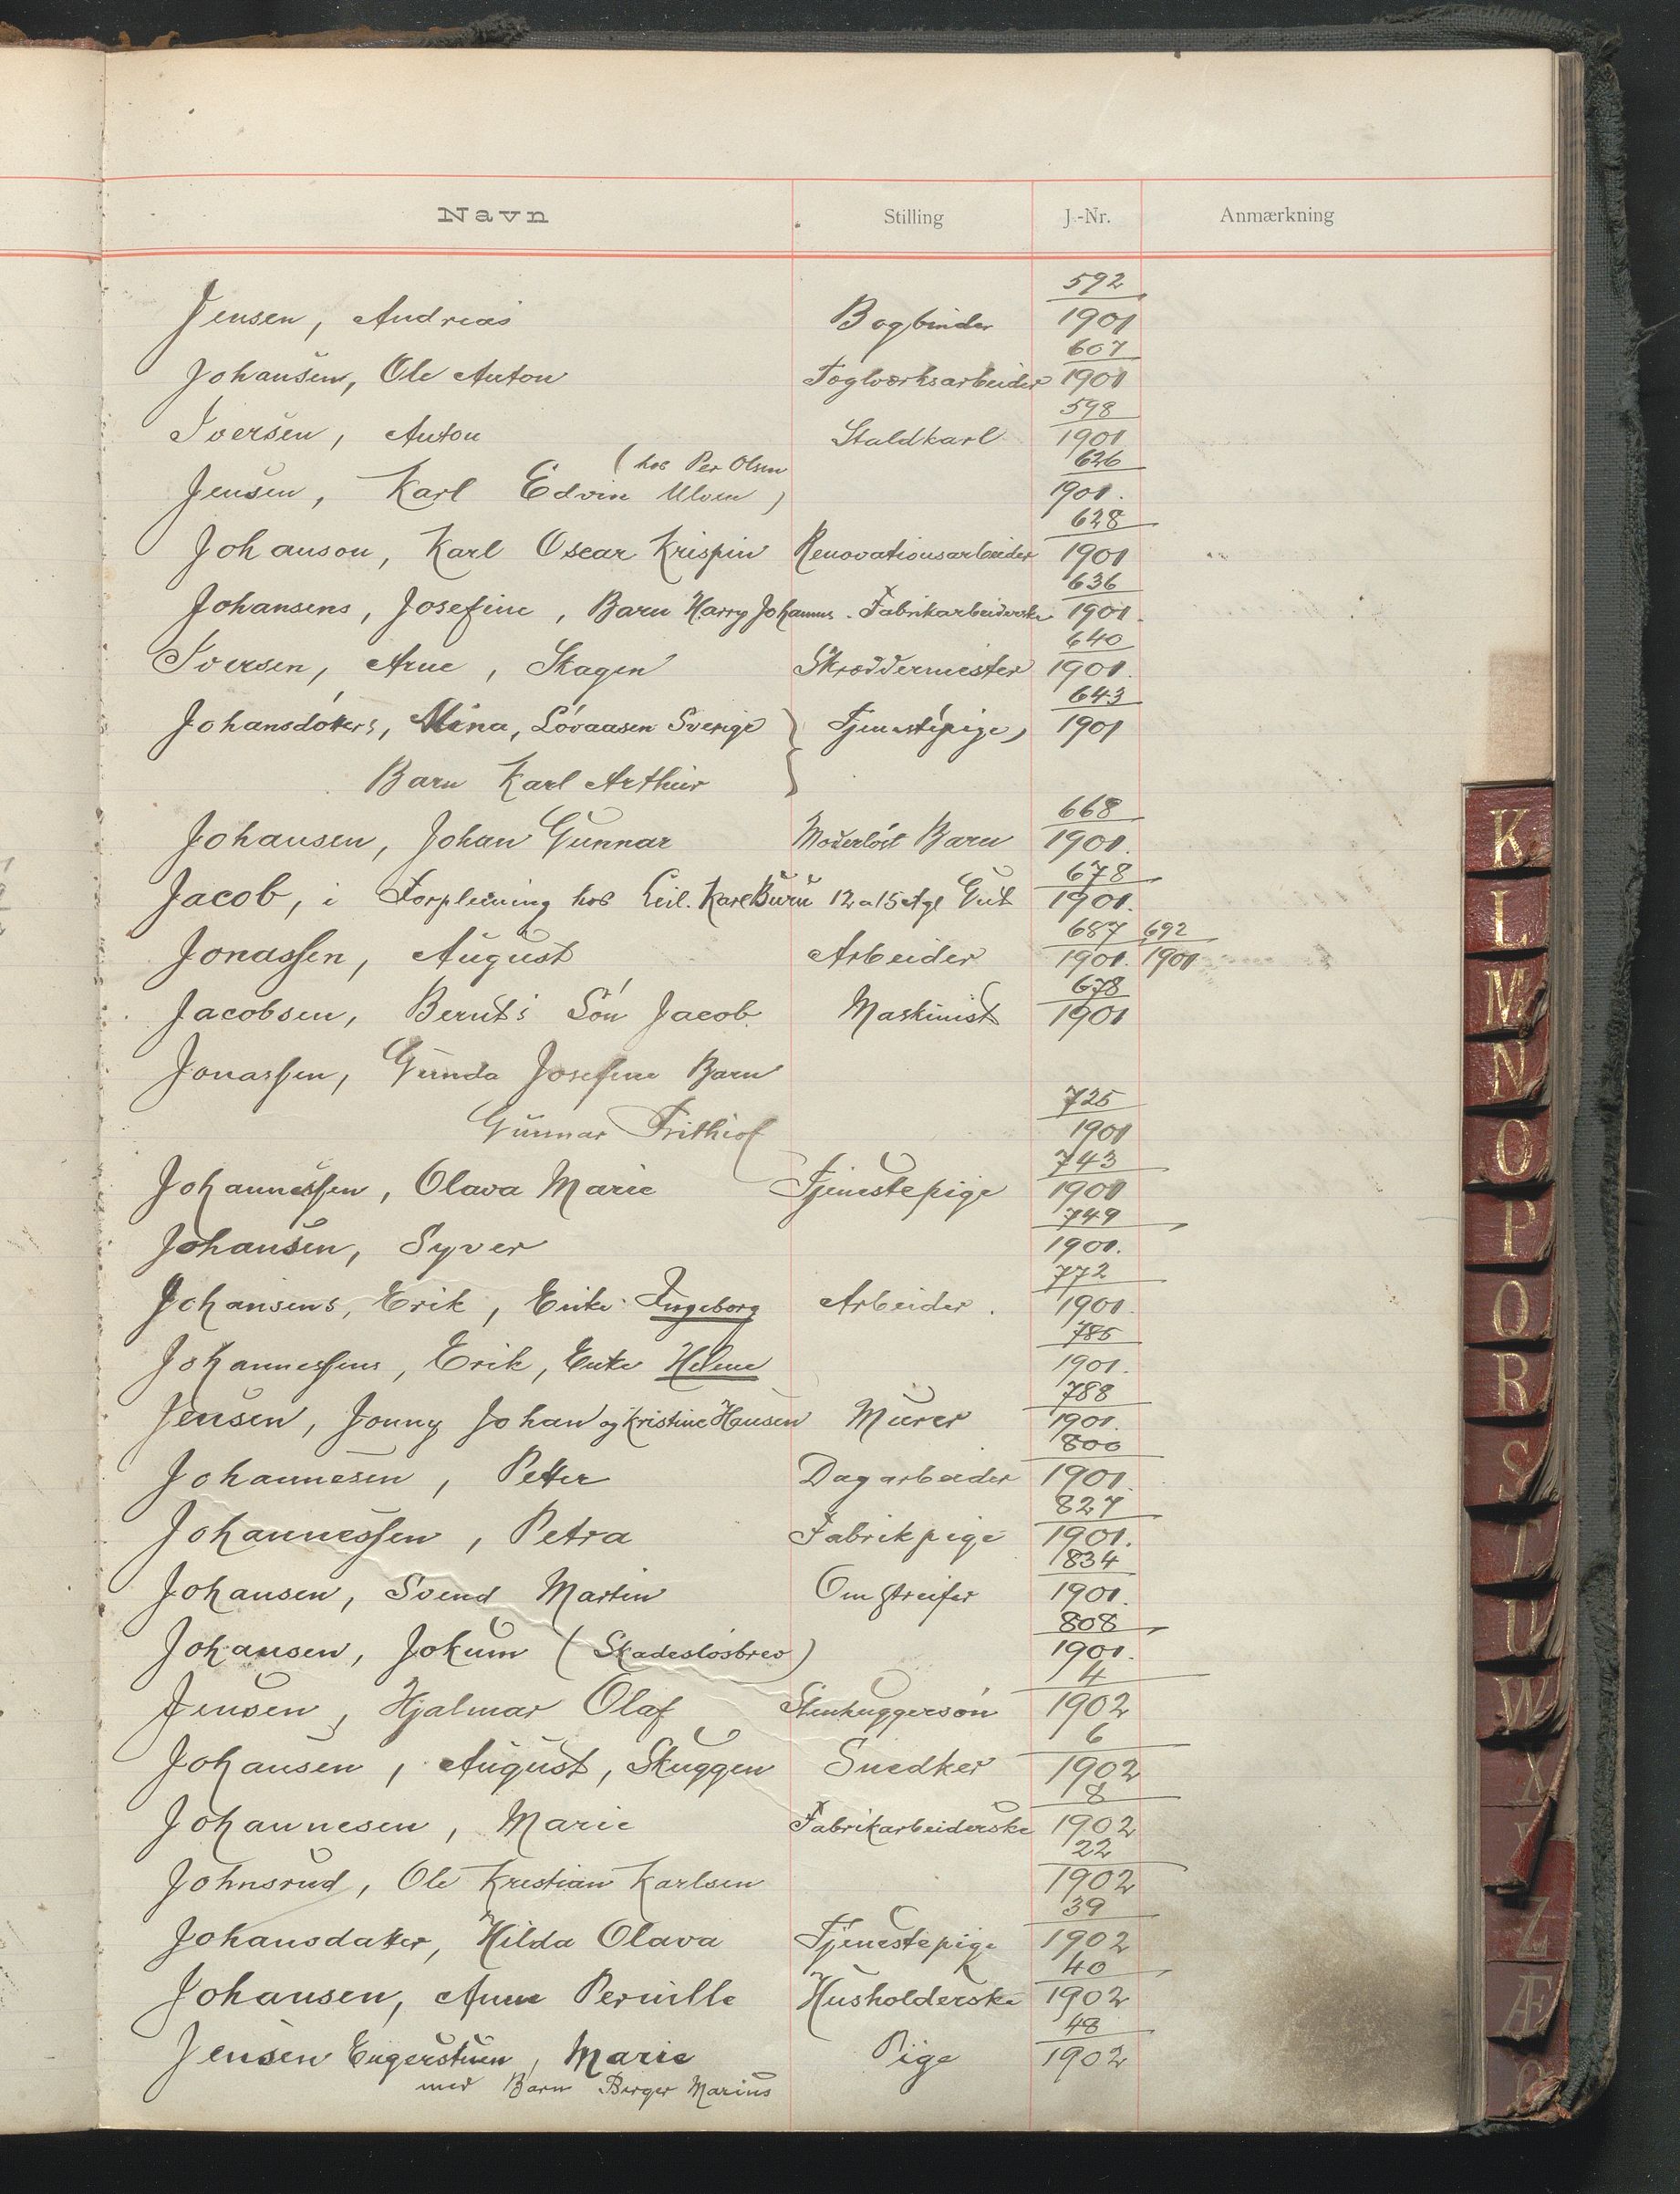 Navn Stilling J.-Nr. Anmærkning
592
Jensen, Andreas Bogbinder 1901
607
Johansen, Ole Anton Teglværksarbeider 1901
598
Iversen, Anton Staldkarl 1901
(hos Per Olsen 626
Jensen, Karl Edvin Ulven) 1901.
628
Johanson, Karl Oscar Krispin Renovationsarbeider 1901
636
Johansens, Josefine, Barn Harry Johannes. Fabrikarbeiderske 1901.
640
Iversen, Arne, Skagen Skræddermester 1901.
643
Johansdótters, Mina, Lövaasen Sverige } Tjenestepige, 1901
Barn Karl Arthur
668
Johansen, Johan Gunnar Moderlöst Barn 1901.
678
Jacob, i Forpleining hos Leil. Karl Buru 12 a 15 Agl Gut 1901.
687 692
Jonassen, August Arbeider 1901. 1901
678
Jacobsen, Bernt's Sön Jacob Maskinist 1901
Jonassen, Gunda Josefine Barn
725
Gunnar Frithiof 1901
743
Johannessen, Olava Marie Tjenestepige 1901
749
Johansen, Syver 1901.
772
Johansens, Erik, Enke Ingeborg Arbeider. 1901.
785
Johannessens, Erik, Enke Helene 1901.
788
Jensen, Jonny Johan og Kristine Hansen Murer 1901.
800
Johannesen, Petter Dagarbeider 1901.
827
Johannessen, Petra Fabrikpige 1901.
834
Johansen, Svend Martin Omstreifer 1901.
808
Johansen, Jokum (Skadeslösbrev) 1901.
4
Jensen, Hjalmar Olaf Stenhuggersön 1902
6
Johansen, August, Skuggen Snedker 1902
8
Johannesen, Marie Fabrikarbeiderske 1902
22
Johnsrud, Ole Kristian Karlsen 1902
39
Johansdatter, Hilda Olava Tjenestepige 1902
40
Johansen, Anne Pernille Husholderske 1902
48
Jensen Engerstuen, Marie Pige 1902
med Barn Berger Marius
K
L
M
N
O
P
Q
R
S
T
U
W
X
Z
Æ